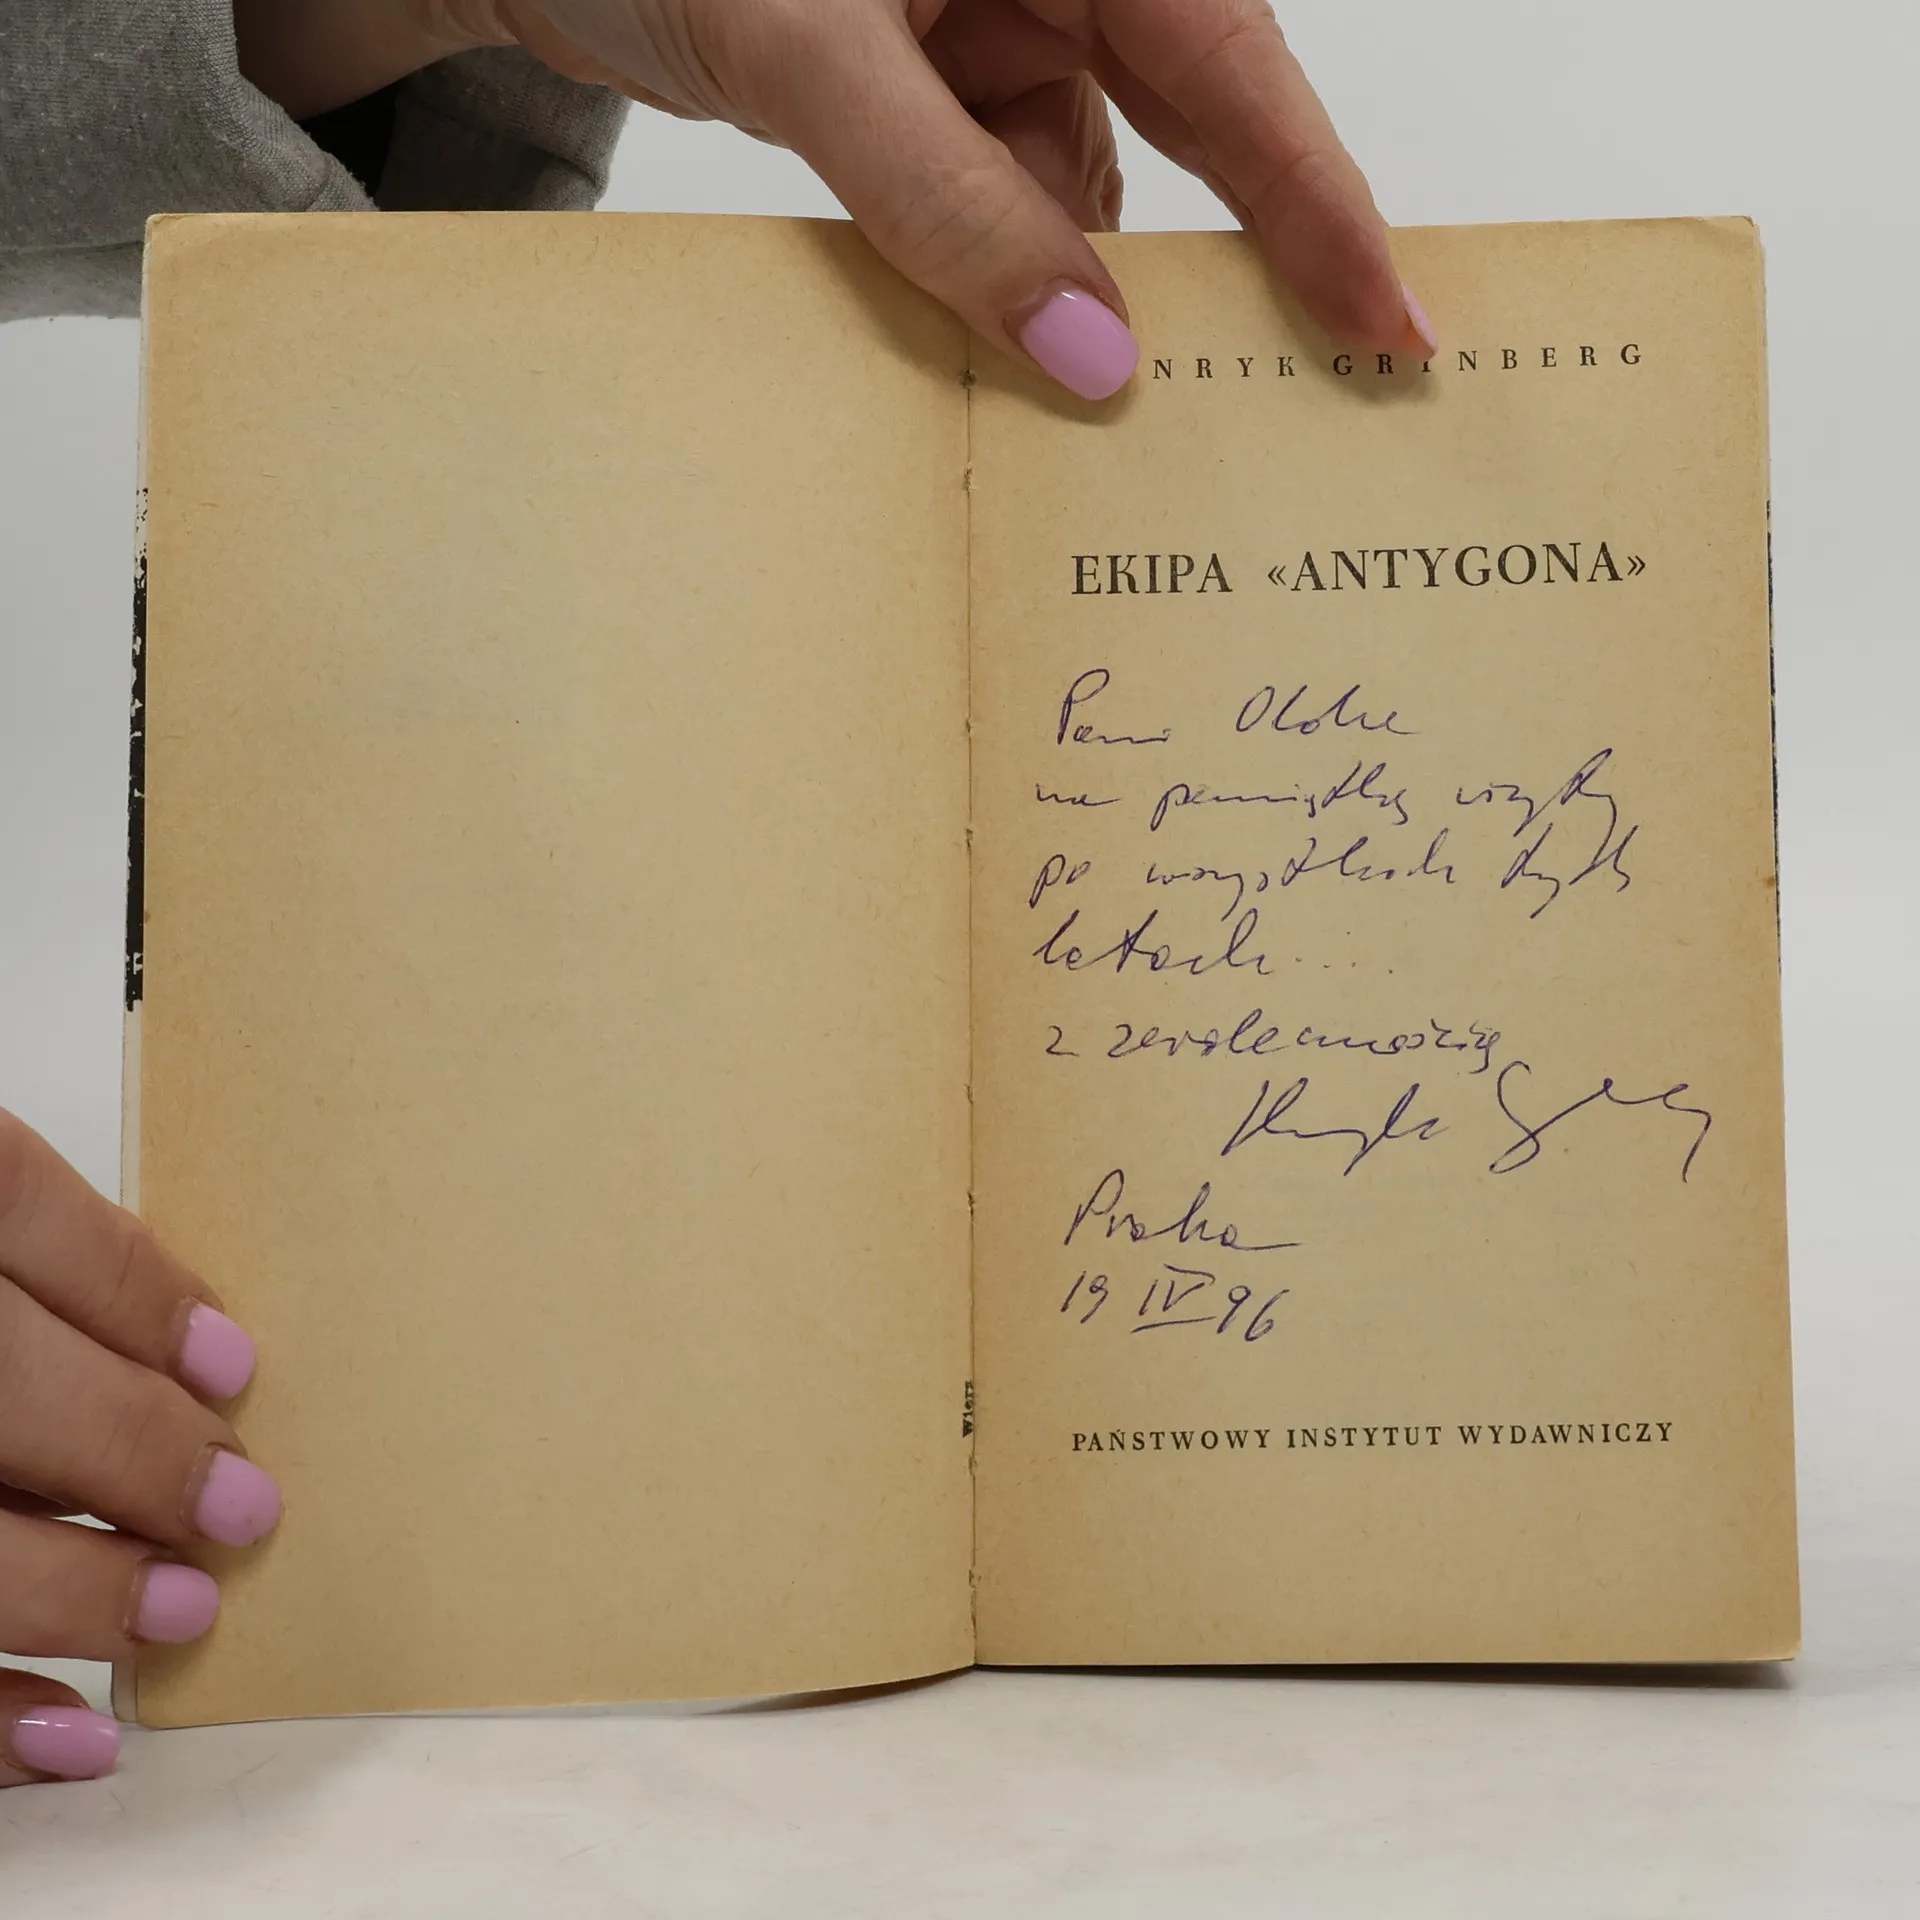 NRYK GRYNBERG
EKIPA «ANTYGONA»
Pani
na pamiątkę wizyty
po wszystkich tych
latach....
z serdecznością
Henryk
Praha
19 IV 96
PAŃSTWOWY INSTYTUT WYDAWNICZY
Wiersz